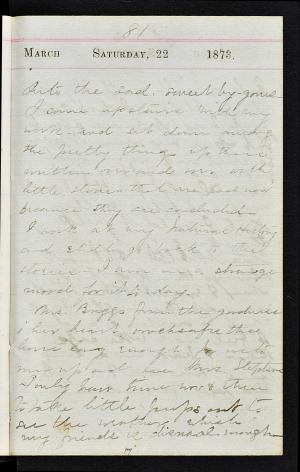 81
MARCH SATURDAY, 22 1873.
Into the sad, sweet by-gones.
I came upstairs with my
work and sit down among
the pretty things up there
written over and over with
little stories that are
because they are concluded.
I work at my Natural History
and still go back to the
stories. I am in a strange
mood for it to day.
Mrs. Briggs from the goodness
of her heart
long enough for me to
run up and see Mrs. Stephens
I only have time now & then
to take little jumps out to
see the mother which
my friends